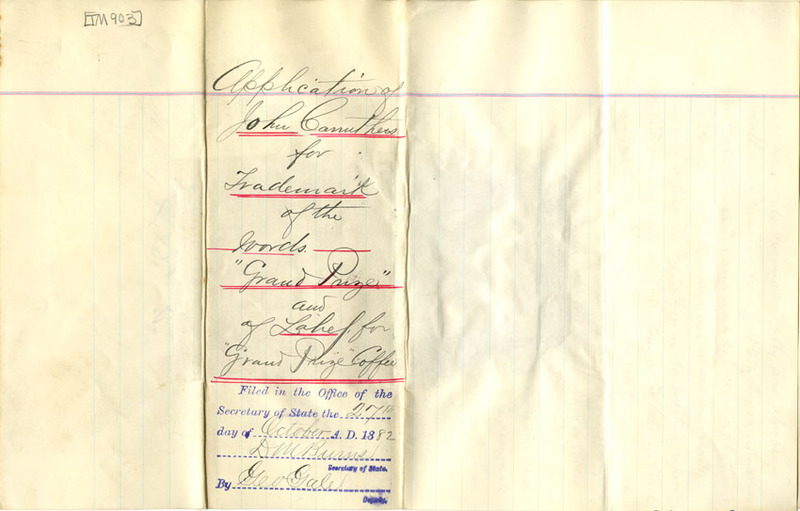 [TM903]
Application of
John Carruthers
for
Trademark
of the
words
"Grand Prize"
and
of Label for
"Grand Prize" Coffee
Filed in the Office of the
Secretary of State the 27th
day of October A. D. 1882
D M Burns
Secretary of State.
By Geo Gale
Deputy.